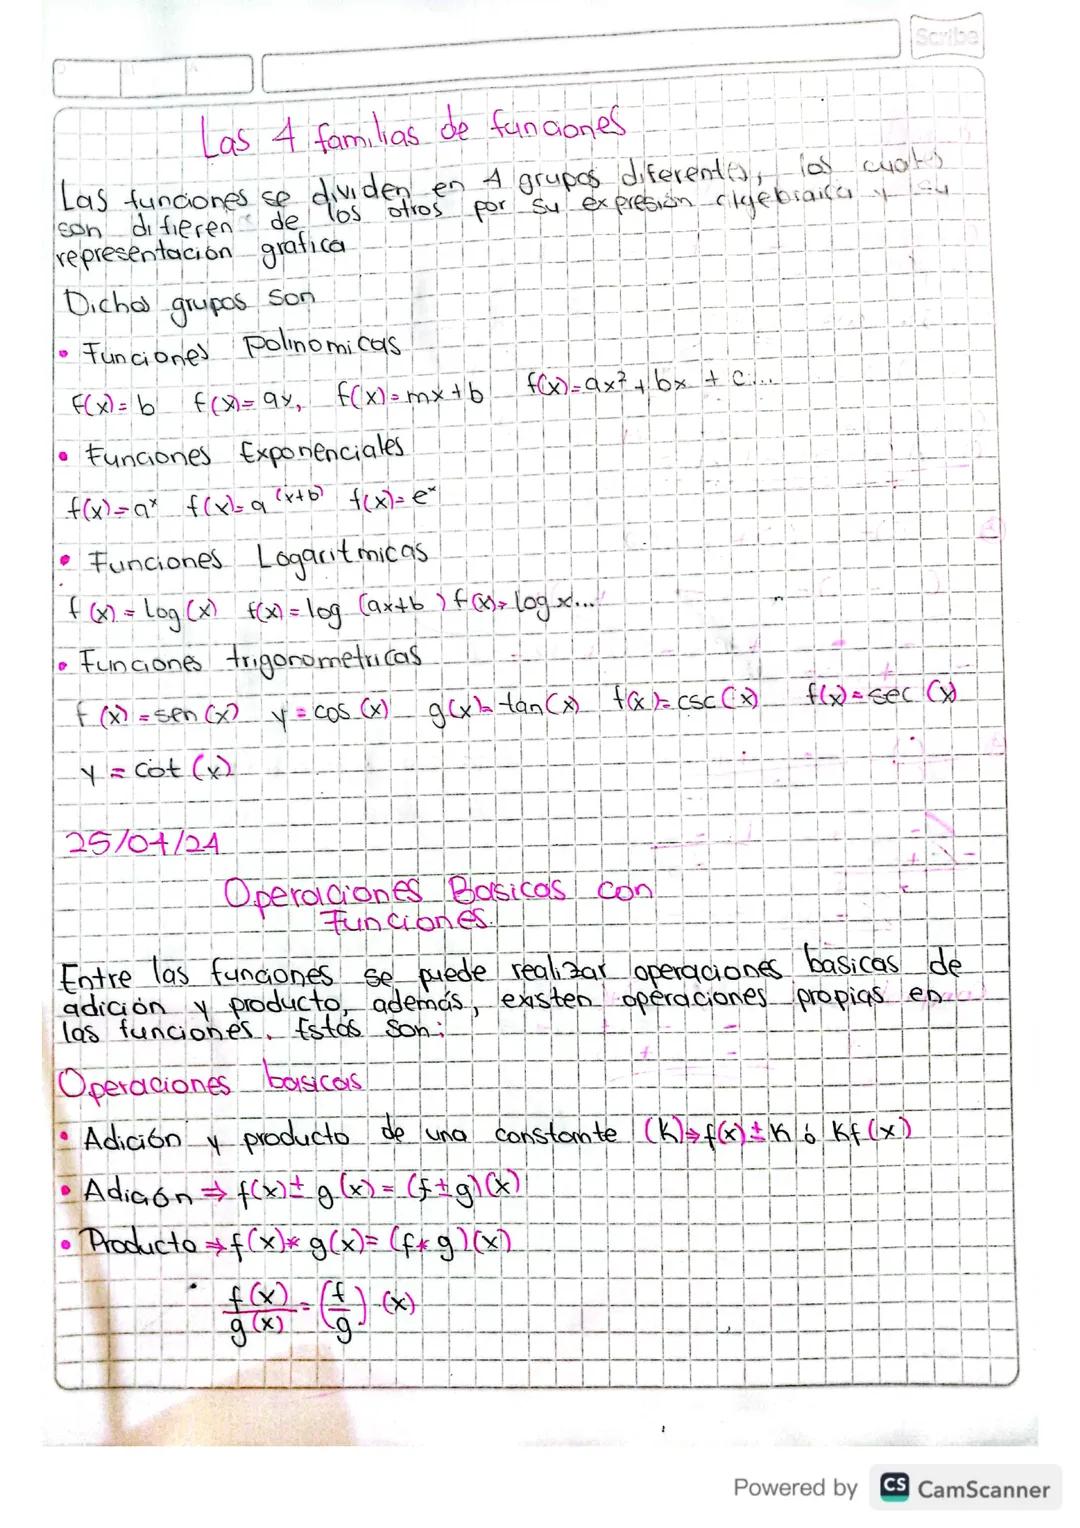 Scribe
Las 4 familias de funciones
Las funciones se dividen en 4 grupos diferentes, los cuales
son difieren de los otros por su expresión algebraica y su
representación grafica
Dichos grupos son
• Funciones Polinomicas
f(x)=b f(x)=ax, f(x)=mx+b f(x)=ax²+bx+c...
• Funciones Exponenciales
f(x)=aˣ f(x)=a⁽ˣ⁺ᵇ⁾ f(x)=eˣ
• Funciones Logaritmicas
f(x)=log(x) f(x)=log(ax+b) f(x)=log x...
• Funciones trigonometricas
f(x)=sen(x) y=cos(x) g(x)=tan(x) f(x)=csc(x) f(x)=sec(x)
y=cot(x)
25/04/24
Operaciones Basicas con
Funciones
Entre las funciones se puede realizar operaciones basicas de
adición y producto, además, existen operaciones propias en
las funciones. Estas son:
Operaciones basicas
• Adición y producto de una constante (K)⇒f(x)±K ó Kf(x)
• Adición ⇒ f(x)±g(x)=(f±g)(x)
• Producto ⇒ f(x)*g(x)=(f*g)(x)
f(x)/g(x)=(f/g)·(x)
Powered by CS CamScanner